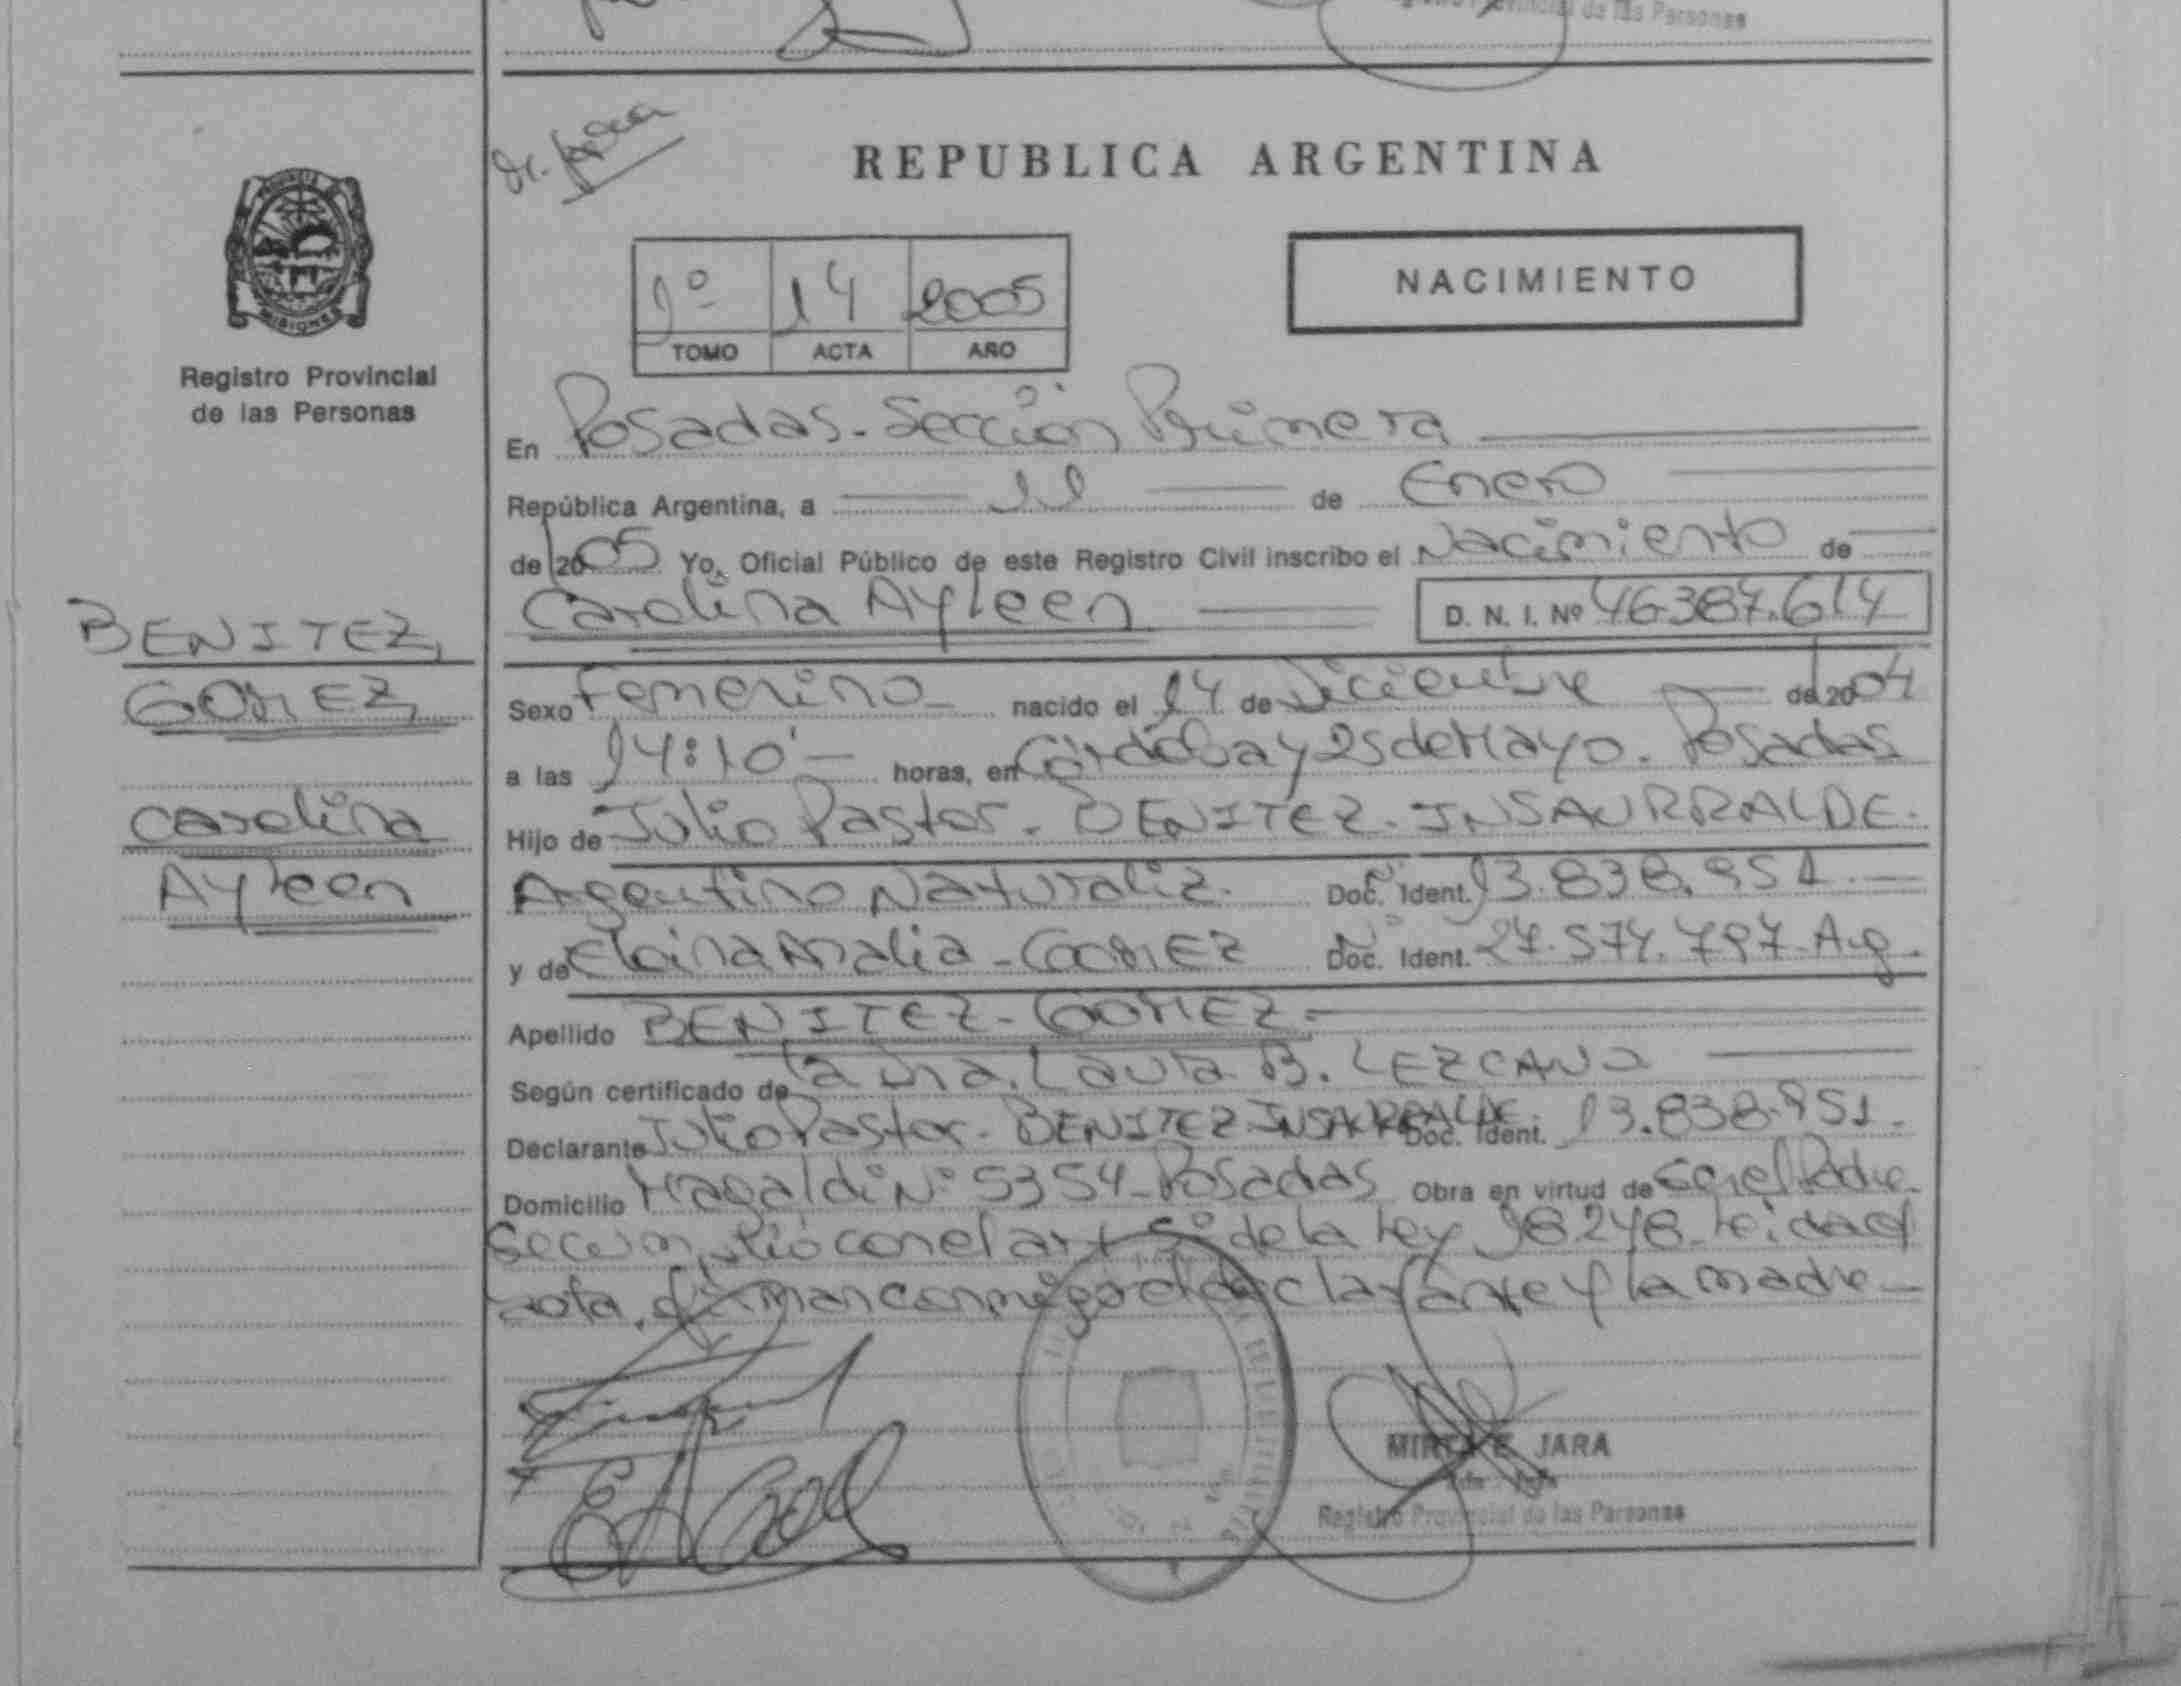 Provincial de las Personas
REPUBLICA ARGENTINA
PROVINCIA
MISIONES
Registro Provincial
de las Personas
1º 14 2005
TOMO ACTA AÑO
NACIMIENTO
En Posadas-Sección Primera
República Argentina, a 11 de Enero
de 2005 Yo, Oficial Público de este Registro Civil inscribo el Nacimiento de
Carolina Ayleen D. N. I. Nº 46387.614
BENITEZ,
GOMEZ,
Carolina
Ayleen
Sexo Femenino nacido el 14 de Diciembre de 2004
a las 14:10'- horas, en Córdoba y 25 de Mayo. Posadas
Hijo de Julio Pastor. BENITEZ-INSAURRALDE.
Argentino Naturaliz. Doc. Ident. 13.838.951
y de Analia-GOMEZ Doc. Ident. 27.574.797 Arg.
Apellido BENITEZ-GOMEZ.
Según certificado de la Dra. Laura B. LEZCANO
Declarante Julio Pastor-BENITEZ INSAURRALDE. Doc. Ident. 13.838.951.
Domicilio Magaldi Nº 5354-Posadas Obra en virtud de ser el Padre.
Se cumplió con el art 5º de la Ley 18248-Leida el
acta, firman conmigo el declarante y la madre-
MIRTA E. JARA
Registro Provincial de las Personas